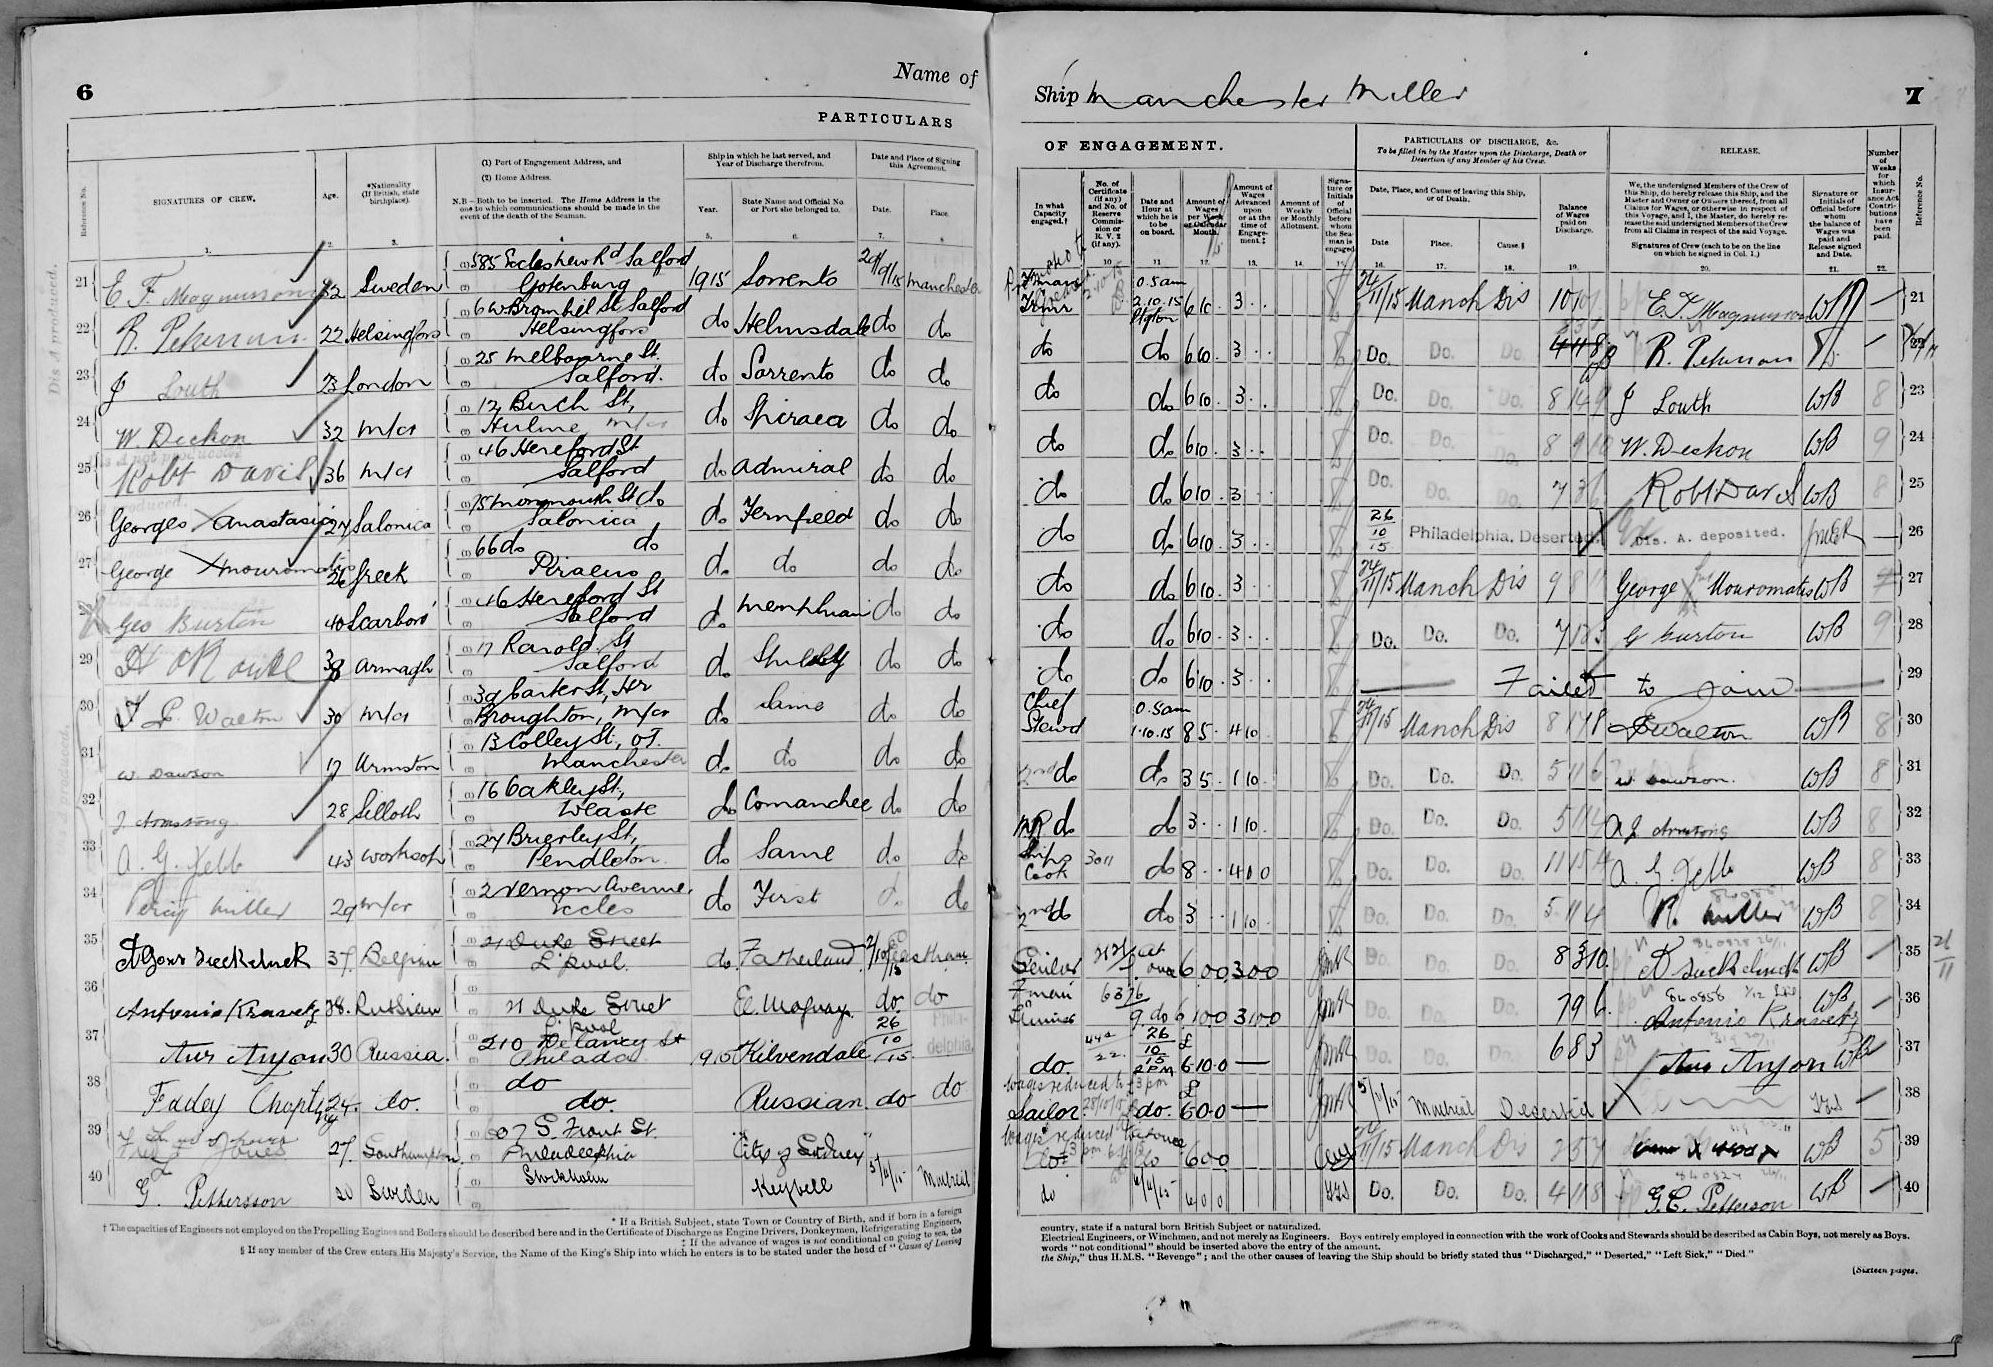 6
Name of
PARTICULARS
Reference No.
SIGNATURES OF CREW.
Age.
*Nationality
(If British, state
birthplace).
(1) Port of Engagement Address, and
(2) Home Address.
N.B.—Both to be inserted. The Home Address is the
one to which communications should be made in the
event of the death of the Seaman.
Ship in which he last served, and
Year of Discharge therefrom.
Year.
State Name and Official No.
or Port she belonged to.
Date and Place of Signing
this Agreement.
Date.
Place.
21 E. F. Magnusson 32 Sweden 585 Eccles New Rd Salford
Gotenburg 1915 Sorrento 29/9/15 Manchester
22 R. Pekman 22 Helsingfors 6 W Bromhil St Salford
Helsingfors do Helmsdale do do
23 J South 23 London 25 Melbourne St.
Salford. do Sorrento do do
24 W. Deckon 32 M/cr 12 Birch St,
Hulme M/cr do Spiraea do do
25 Robt Davis 36 M/cr 46 Hereford St
Salford do Admiral do do
26 Georges X Anastasio 27 Salonica 75 Monmouth St do
Salonica do Fernfield do do
27 George X Mouromatis 26 Greek 66 do do
Piraeus do do do do
28 Geo Burton 40 Scarboro' 46 Hereford St
Salford do Memphian do do
29 38 Armagh 17 Ranold St
Salford do do do
30 Walton 30 M/cr 39 Carter St, Hr
Broughton, M/cr do Same do do
31 W. Dawson 17 Urmston 13 Colley St, O.T.
Manchester do do do do
32 J. Armstong 28 Silloth 16 Oakley St,
Weaste do Comanchee do do
33 A. G. Jebb 43 Worksop 24 Brierley St,
Pendleton do Same do do
34 Percy Miller 29 M/cr 2 Vernon Avenue,
Eccles do First do do
35 37. Belgian 21 Duke Street
L'pool. do. Fatherland 2/10/15 Eastham
36 Antonio Kravetz 38. Russian 21 Duke Street
L'pool El. Uruguayo do. do
37 Ans Anyon 30 Russia. 210 Delancy St
Philada 915 Kilvendale 26/10/15 Philadelphia
38 Fadey 24. do. do
do. Russian. do do
39 Jones 27. Southampton. 607 S. Front St.
Philadelphia "City of Sydney"
40 G. Pettersson 20 Sweden Stockholm
Keyvell 5/11/15 Montreal
* If a British Subject, state Town or Country of Birth, and if born in a foreign
† The capacities of Engineers not employed on the Propelling Engines and Boilers should be described here and in the Certificate of Discharge as Engine Drivers, Donkeymen, Refrigerating Engineers,
‡ If the advance of wages is not conditional on going to sea, the
§ If any member of the Crew enters His Majesty's Service, the Name of the King's Ship into which he enters is to be stated under the head of "Cause of Leaving
Ship Manchester Miller
7
OF ENGAGEMENT.
PARTICULARS OF DISCHARGE, &c.
To be filled in by the Master upon the Discharge, Death or
Desertion of any Member of his Crew.
RELEASE.
In what
Capacity
engaged.†
No. of
Certificate
(if any)
and No. of
Reserve
Commis-
sion or
R. V. 2
(if any).
Date and
Hour at
which he is
to be
on board.
Amount of
Wages
per Week
or Calendar
Month.
Amount of
Wages
Advanced
upon
or at the
time of
Engage-
ment.‡
Amount of
Weekly
or Monthly
Allotment.
Signa-
ture or
Initials
of
Official
before
whom
the Sea-
man is
engaged
Date, Place, and Cause of leaving this Ship,
or of Death.
Date
Place.
Cause.§
Balance
of Wages
paid on
Discharge.
We, the undersigned Members of the Crew of
this Ship, do hereby release this Ship, and the
Master and Owner or Owners thereof, from all
Claims for Wages, or otherwise in respect of
this Voyage, and I, the Master, do hereby re-
lease the said undersigned Members of the Crew
from all Claims in respect of the said Voyage.
Signatures of Crew (each to be on the line
on which he signed in Col. 1.)
Signature or
Initials of
Official before
whom
the balance of
Wages was
paid and
Release signed
and Date.
Number
of
Weeks
for
which
Insur-
ance Act
Contri-
butions
have
been
paid.
Reference No.
0.5am
2.10.15 6 10 . 3 . . 24/11/15 Manch Dis E. F. Magnusson WB 21
do do 6 10 . 3 . . Do. Do. Do. R. Pekman
do do 6 10 . 3 . . Do. Do. Do. J South WB 8 23
do do 6 10 . 3 . . Do. Do. Do. 8 9 10 W. Deckon WB 9 24
do do 6 10 . 3 . . Do. Do. Do. Robt Davis WB 8 25
do do 6 10 . 3 . . 26/10/15 Philadelphia. Deserted. Dis. A. deposited. 26
do do 6 10 . 3 . . 24/11/15 Manch Dis George X Mouromatis WB 27
do do 6 10 . 3 . . Do. Do. Do. G Burton WB 9 28
do do 6 10 . 3 . . Failed to Join 29
Chief
Stewd 0.5am
1.10.15 8 5 . 4 10 24/11/15 Manch Dis Walton WB 8 30
2nd do do 3 5 . 1 10 . Do. Do. Do. W Dawson. WB 8 31
do do 3 . . 1 10 . Do. Do. Do. J Armstong WB 8 32
Ships
Cook 3011 do 8 . . 4 10 0 Do. Do. Do. A. G. Jebb WB 8 33
2nd do do 3 . . 1 10 . Do. Do. Do. 5 11 4 Miller WB 8 34
Sailor at once 6 0 0 3 0 0 Do. Do. Do. 8 3 10. WB 35
6376 do 6 10 0 3 10 0 Do. Do. Do. 7 9 6. Antonio Kravetz WB 36
do. 26/10/15
2 PM £ 6 10 0 — Do. Do. Do. 6 8 3 Ans Anyon WB 37
Wages reduced to £3 pm
Sailor. 28/10/15 do. £ 6 0 0 — 5/11/15 Montreal Deserted X 38
Wages reduced
do 6 0 0 24/11/15 Manch Dis X WB 5 39
do 6/11/15 6 0 0 Do. Do. Do. 4 11 8 G. E. Petterson WB 40
country, state if a natural born British Subject or naturalized.
Electrical Engineers, or Winchmen, and not merely as Engineers. Boys entirely employed in connection with the work of Cooks and Stewards should be described as Cabin Boys, not merely as Boys.
words "not conditional" should be inserted above the entry of the amount.
the Ship," thus H.M.S. "Revenge"; and the other causes of leaving the Ship should be briefly stated thus "Discharged," "Deserted," "Left Sick," "Died."
[Sixteen pages.